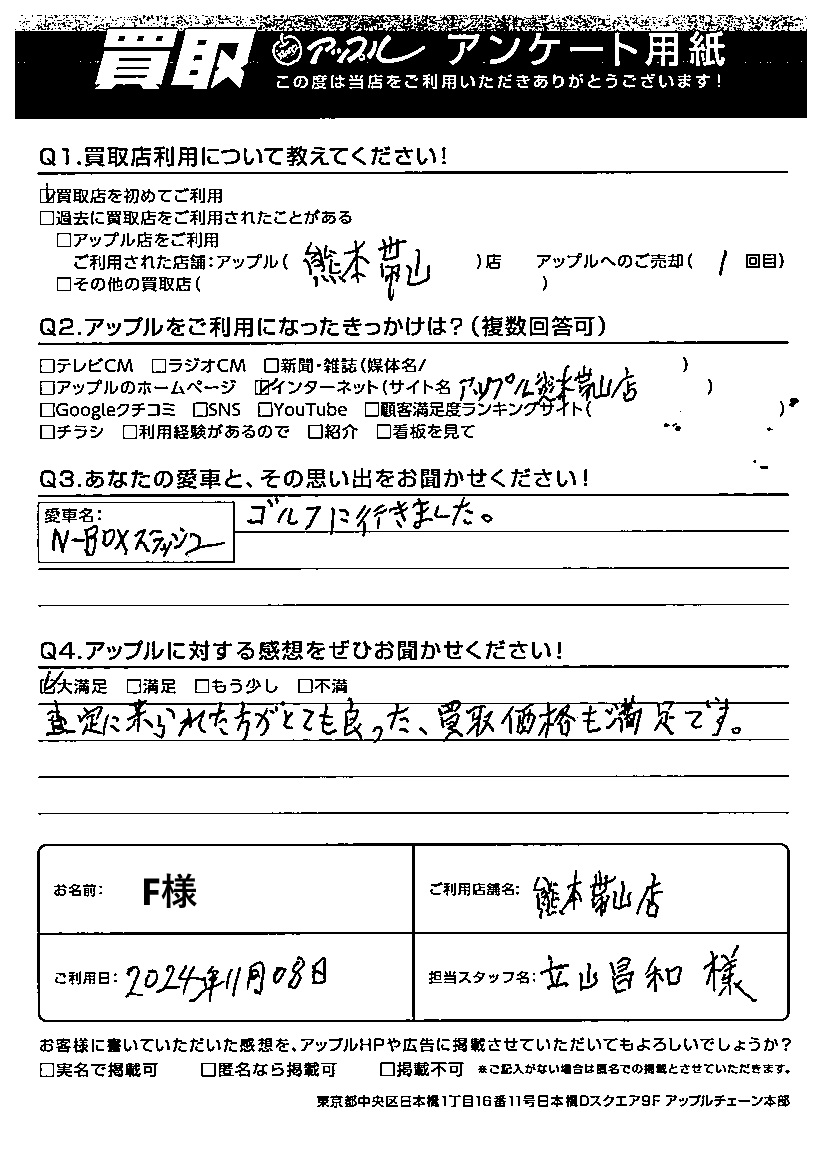 買取 アップル アンケート用紙
この度は当店をご利用いただきありがとうございます!
Q1.買取店利用について教えてください!
☑買取店を初めてご利用
□過去に買取店をご利用されたことがある
□アップル店をご利用
ご利用された店舗:アップル( 熊本帯山 )店 アップルへのご売却( 1 回目)
□その他の買取店( )
Q2.アップルをご利用になったきっかけは?(複数回答可)
□テレビCM □ラジオCM □新聞・雑誌(媒体名/ )
□アップルのホームページ ☑インターネット(サイト名 アップル熊本帯山店 )
□Googleクチコミ □SNS □YouTube □顧客満足度ランキングサイト( )
□チラシ □利用経験があるので □紹介 □看板を見て
Q3.あなたの愛車と、その思い出をお聞かせください!
愛車名: N-BOXスラッシュ
ゴルフに行きました。
Q4.アップルに対する感想をぜひお聞かせください!
☑大満足 □満足 □もう少し □不満
査定に来られた方がとても良った、買取価格も満足です。
お名前: F様 ご利用店舗名: 熊本帯山店
ご利用日: 2024年11月08日 担当スタッフ名: 立山昌和 様
お客様に書いていただいた感想を、アップルHPや広告に掲載させていただいてもよろしいでしょうか?
□実名で掲載可 □匿名なら掲載可 □掲載不可 ※ご記入がない場合は匿名での掲載とさせていただきます。
東京都中央区日本橋1丁目16番11号日本橋Dスクエア9F アップルチェーン本部